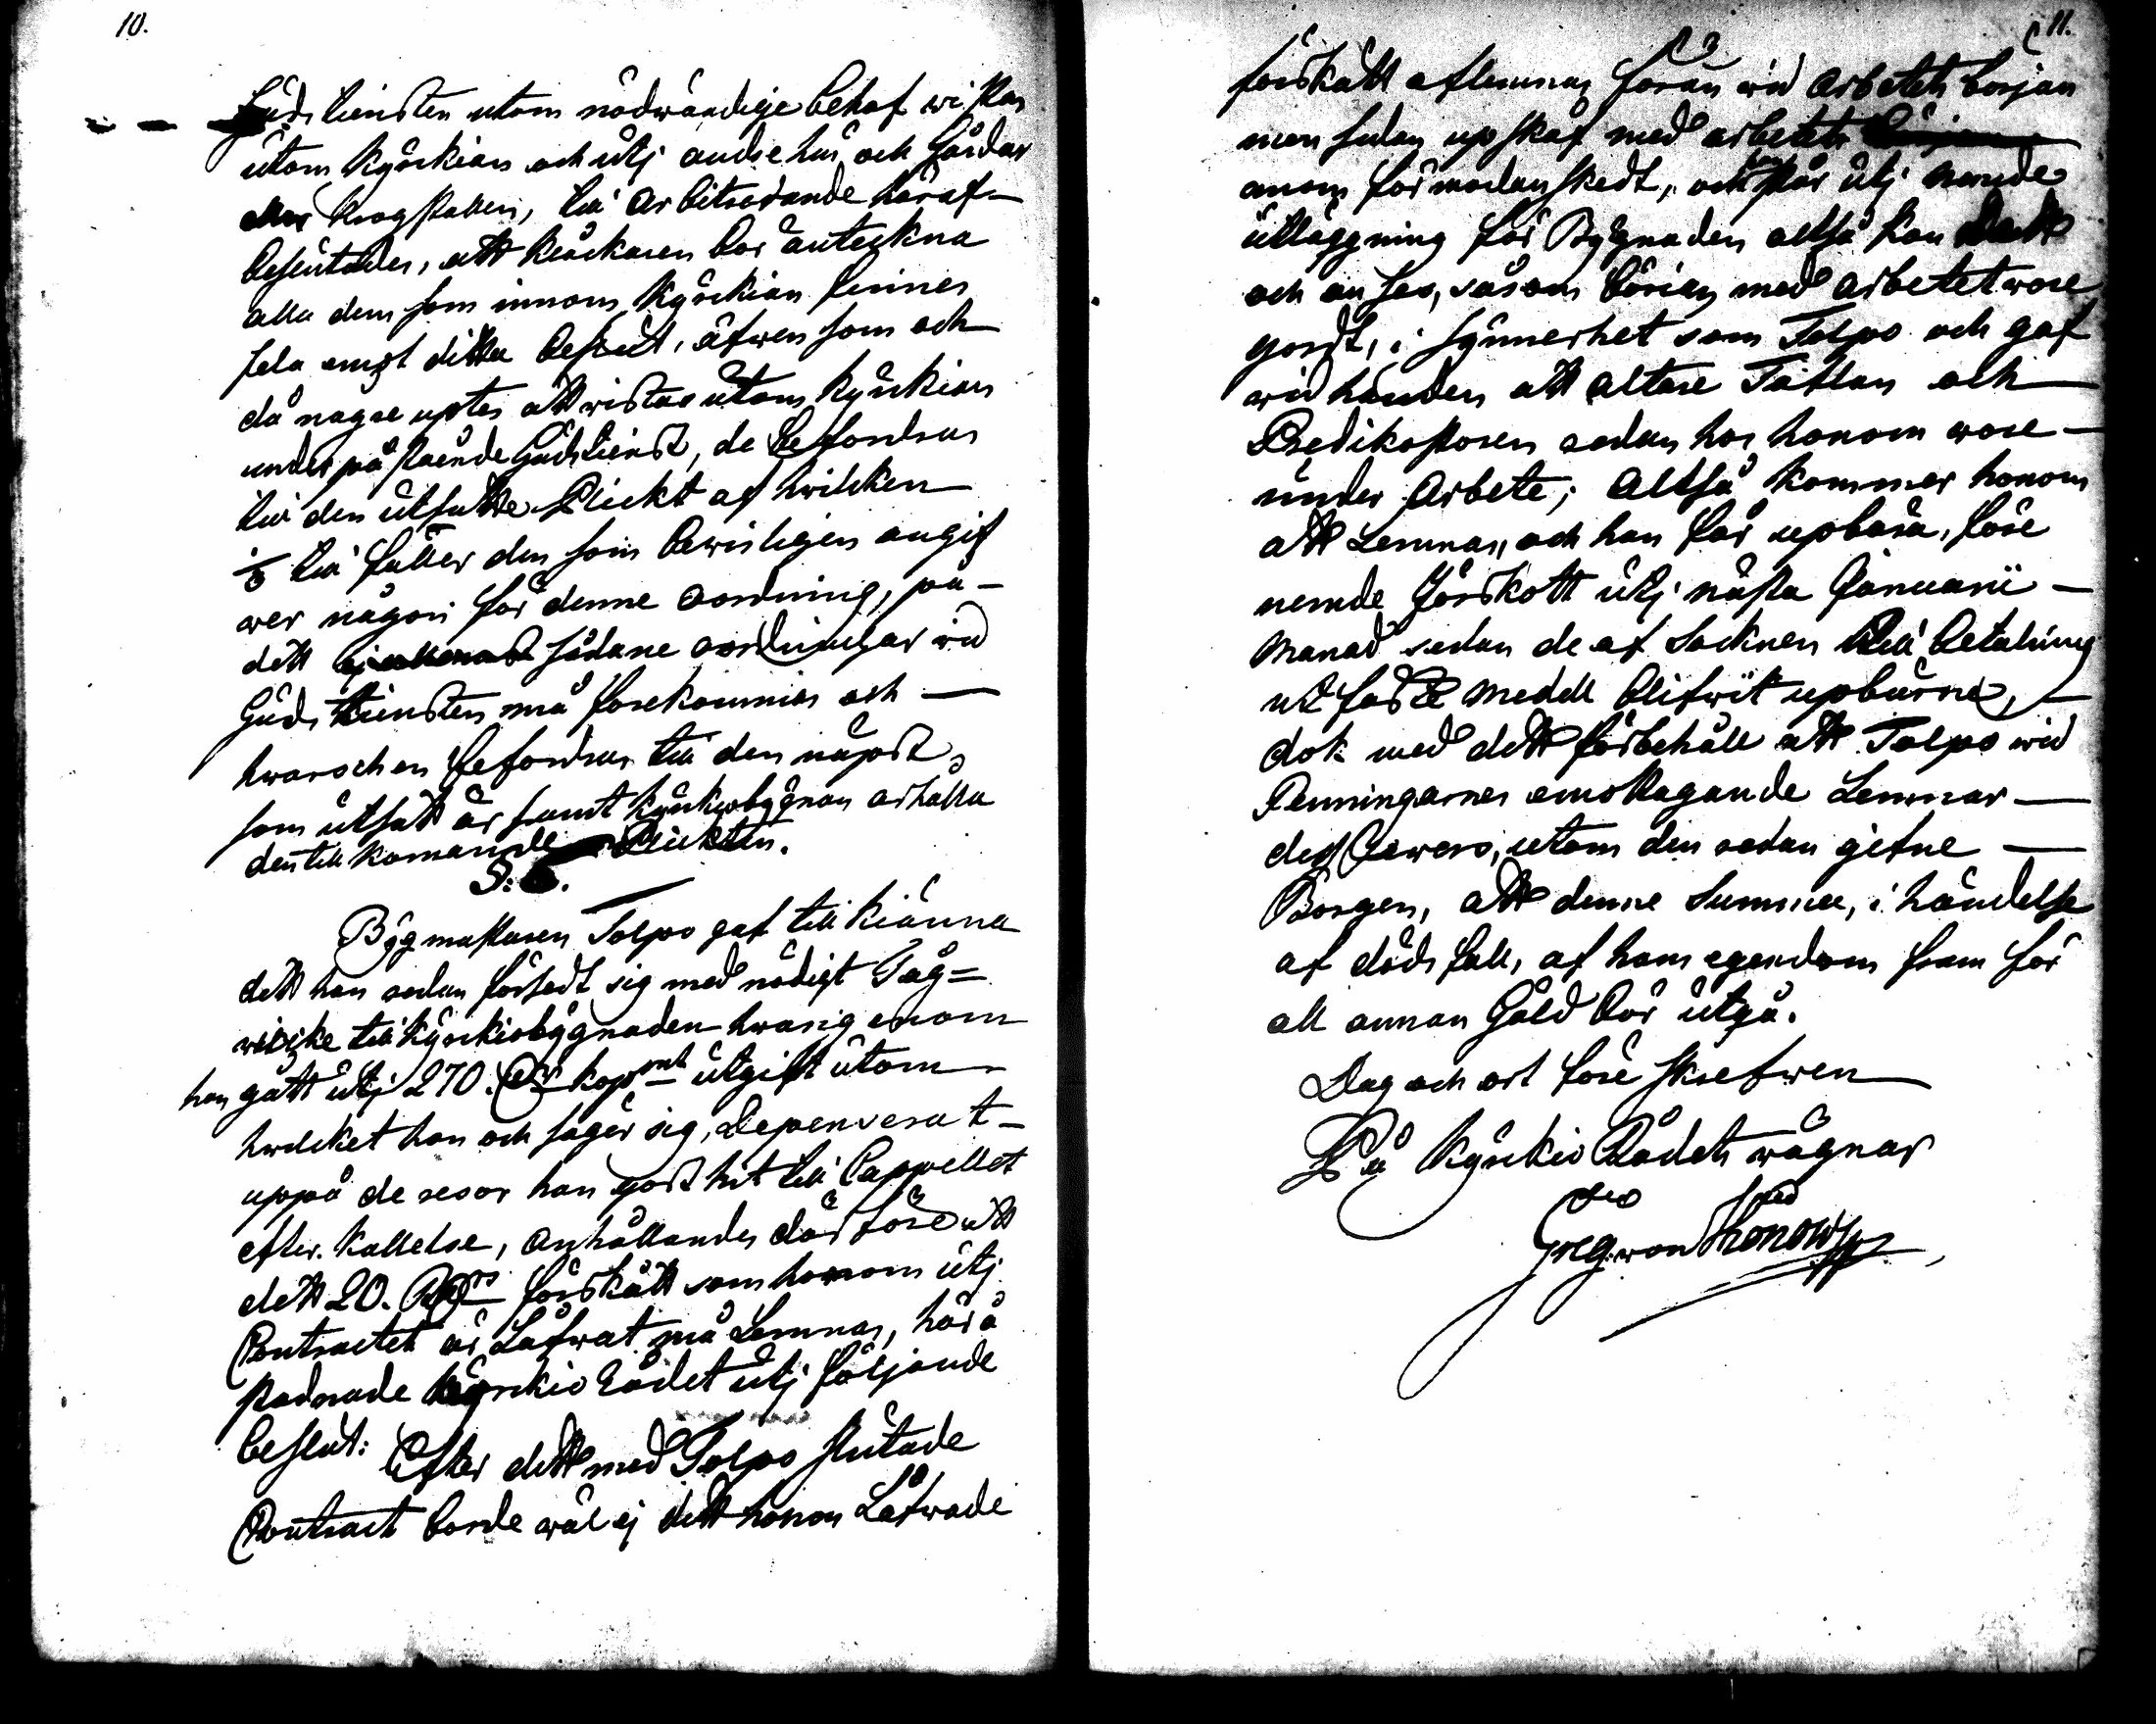 10.
Guds tiensten utom nödwändige behof wistas
utom kyrkian och utj andre hus och Gårdar
eller krogställen, till arbitrerande häraf
beslutades, att klåckaren bör anteckna
alla dem som innom kyrkian finnes
fela emot detta beslut, äfwen som och
då någre uptes att wistas utom kyrkian
under påstående Gudstienst, de befordras
till den utsatte Plickt af hwilcken
1/3 till faller den som bewisligen angif
wer någon för denne oordning, på
dett sådane oordningar wid
Guds tiensten må förekommas och
hwarochen befordras till den näpst,
som utsatt är samt kyrkiobygnan erhålla
den till komande Plickten.
S:
Bygmästaren Tolpo gaf till kiänna
dett han redan försedt sig med nödigt Täg=
wirke till kyrkiobygnaden hwarigenom
han gått utj 270. kopmt utgift utom
hwilcket han och säger sig, depenserat
uppå de resor han giort hit till Cappellet
efter kallelse, anhållandes därföre att
dett 20. förskått som honom utj
Contractet är Låfwat må Lemnas, härå
stadnade kyrkio Rådet utj följande
beslut: Efter dett med Tolpo slutade
Contract borde wäl ej dett honom Låfwade
11.
förskått aflemnas förän wid arbetets början
men sedan upskåf med arbetets
anom förmodan skedt, och står utj
utläggning för Bygnaden altså kan
och anses, såsom början med arbetet wore
giordt, i synnerhet som Tolpo och gaf
wid handen att altare Taflan och
Predikostolen redan hos honom wore
under arbete; altså kommer honom
att Lemnas, och han får upbära, före
nemde förskott utj nästa Januarii
Månad sedan de af Socknen till betalning
ut faste medell blifwit upburne,
dok med dett förbehåll att Tolpo wid
Penningarnes emottagande Lemnar
dess Rewers, utom den redan gifne
Borgen, att denne Summa, i händelse
af dödsfall, af hans egendom fram för
all annan Gäld bör utgå.
Dag och ort före skrefwen
På kyrkio Rådets wägnar
Greg. von Thonow